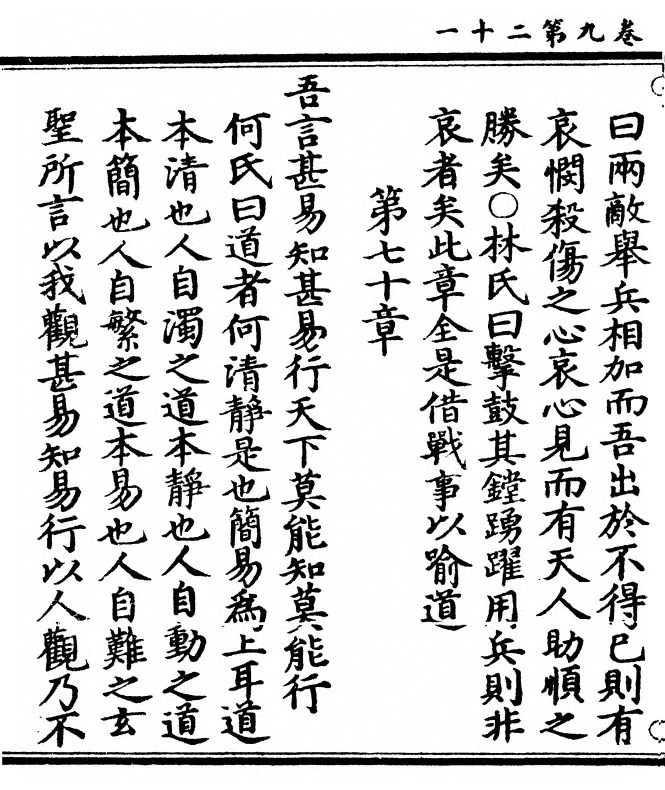 卷九第二十一
曰兩敵舉兵相加而吾出於不得已則有
哀憫殺傷之心哀心見而有天人助順之
勝矣○林氏曰擊鼓其鏜踴躍用兵則非
哀者矣此章全是借戰事以喻道
第七十章
吾言甚易知甚易行天下莫能知莫能行
何氏曰道者何清靜是也簡易為上耳道
本清也人自濁之道本靜也人自動之道
本簡也人自繁之道本易也人自難之玄
聖所言以我觀甚易知易行以人觀乃不